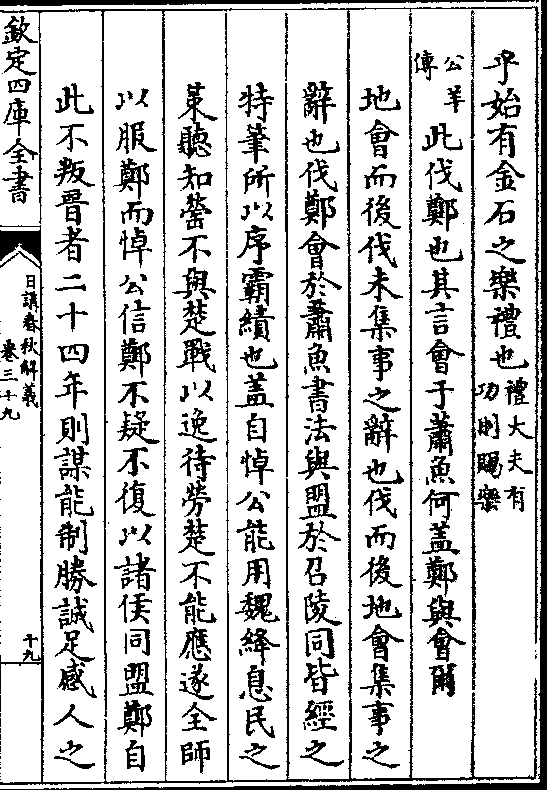 乎始有金石之樂禮也禮大夫有功則賜樂
公羊傳此伐鄭也其言會于蕭魚何蓋鄭與會爾
地會而後伐未集事之辭也伐而後地會集事之
辭也伐鄭會於蕭魚書法與盟於召陵同皆經之
特筆所以序霸績也蓋自悼公能用魏絳息民之
策聽知罃不與楚戰以逸待勞楚不能應遂全師
以服鄭而悼公信鄭不疑不復以諸侯同盟鄭自
此不叛晉者二十四年則謀能制勝誠足感人之
欽定四庫全書
日講春秋解義
卷三十九
十九